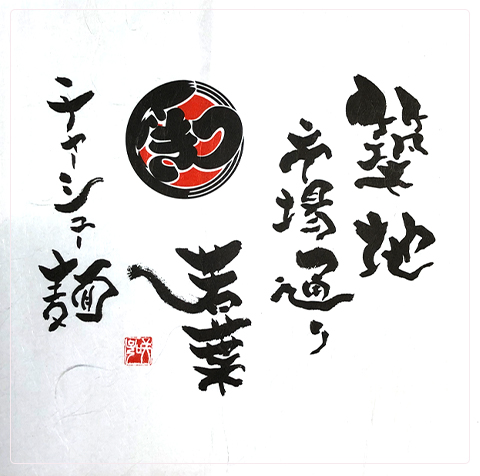 築地
市場通り
若葉
チャーシュー麺